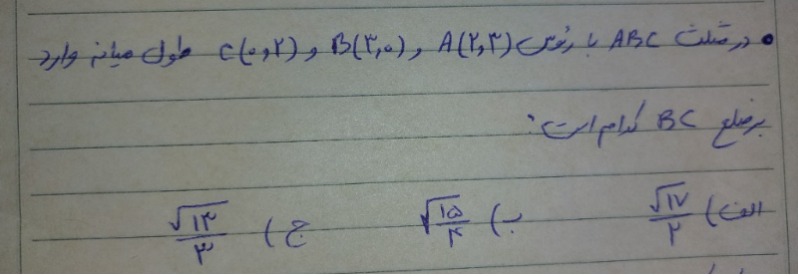 • در مثلث ABC با رئوس A(۲,۳) و B(۳,۰) و C(۰,۲) طول میانه وارد
بر ضلع BC کدام است:
الف) √۱۷/۲ ب) √۱۵/۴ ج) √۱۳/۳